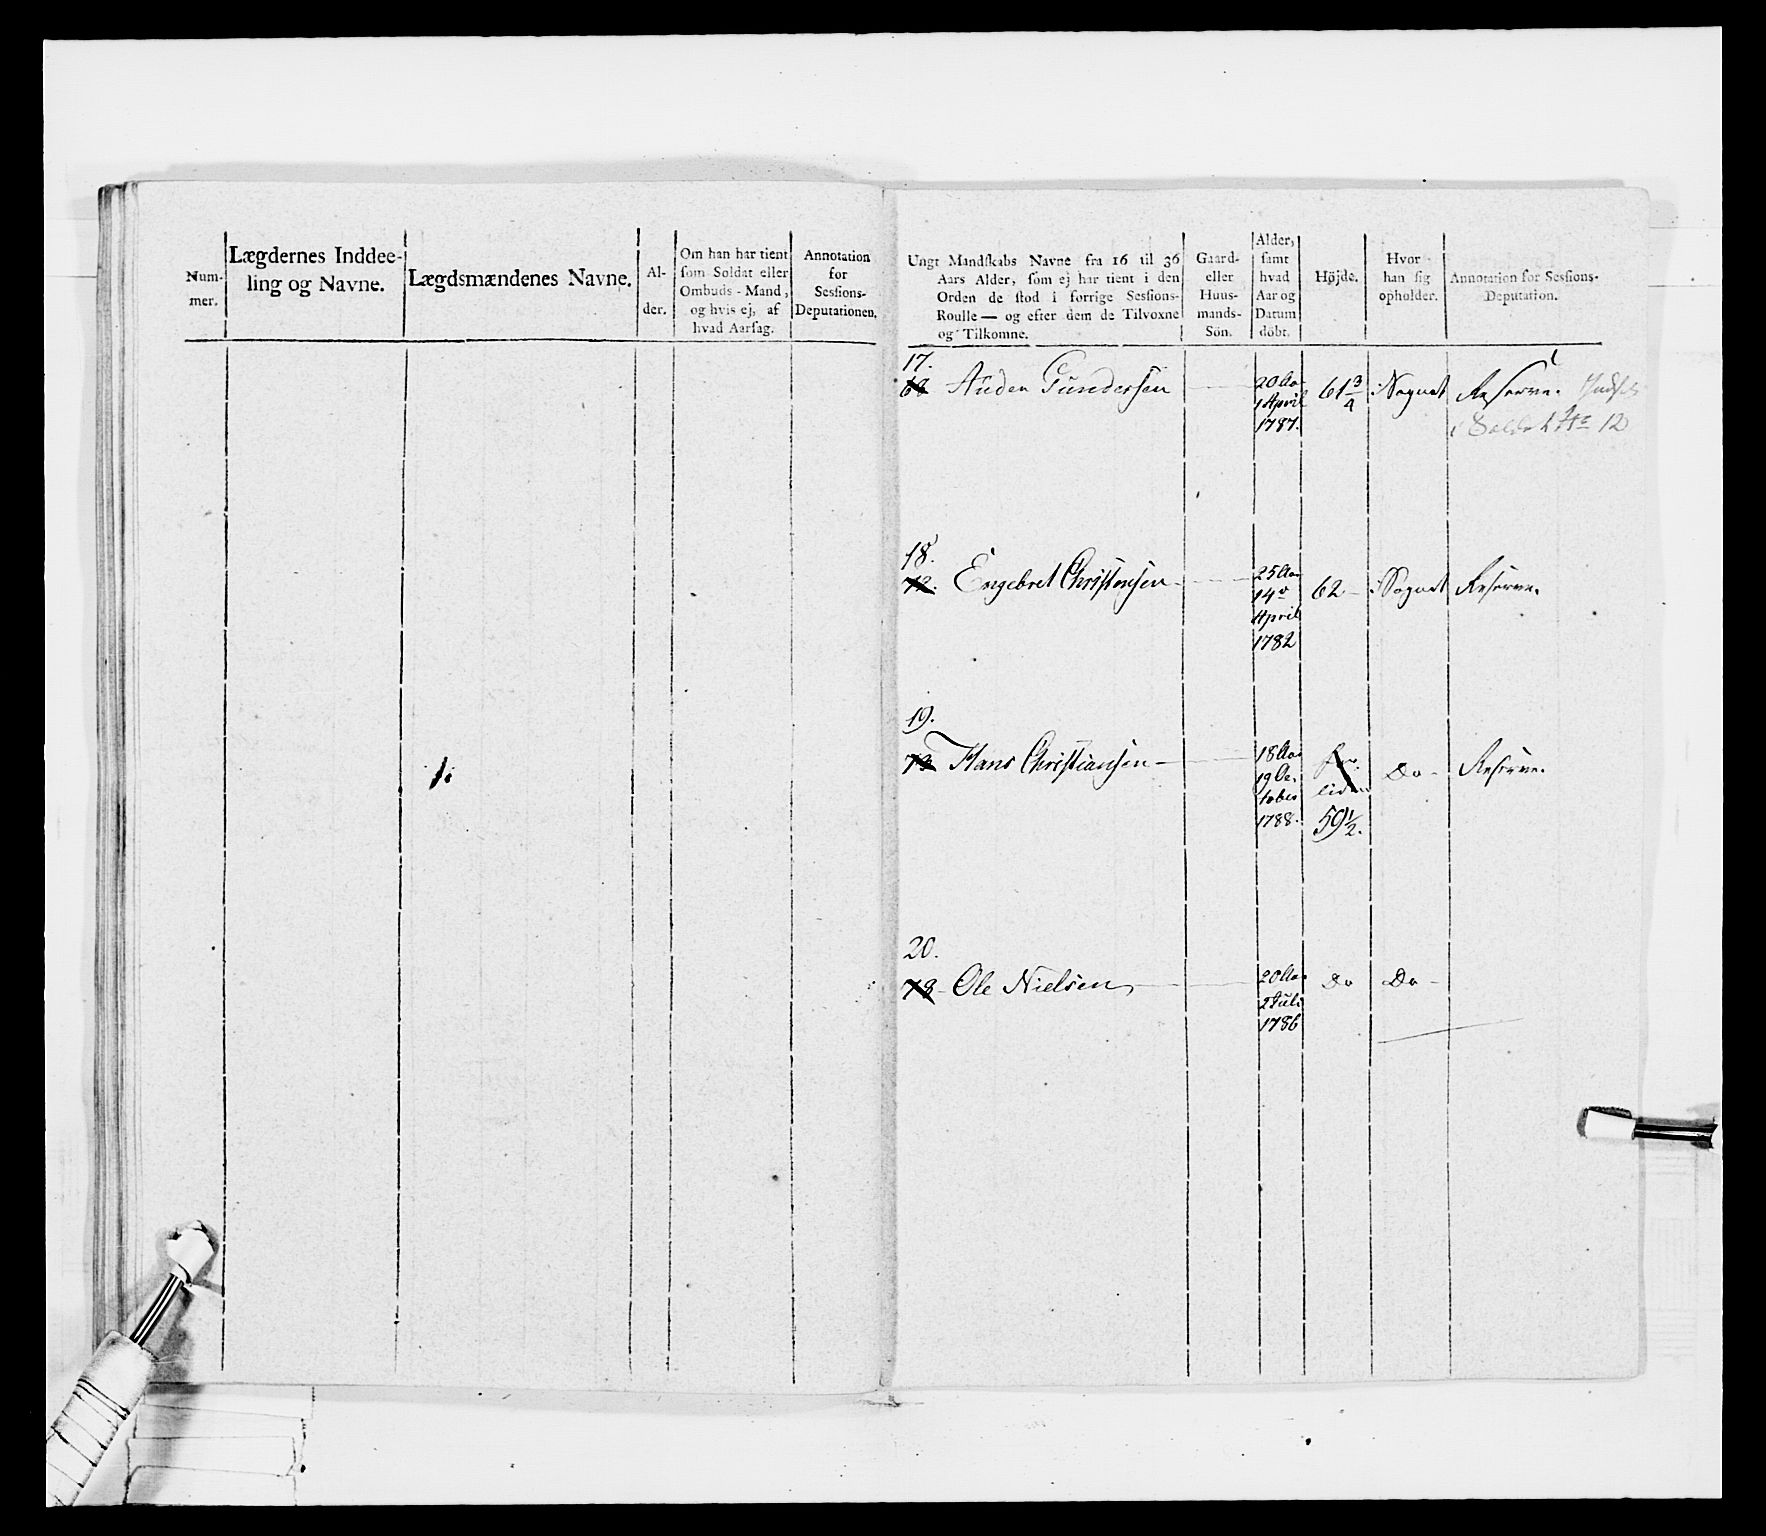 Num-
mer.
Lægdernes Inddee-
ling og Navne.
Lægdsmændenes Navne.
Al-
der.
Om han har tient
som Soldat eller
Ombuds-Mand,
og hvis ej, af
hvad Aarsag.
Annotation
for
Sessions-
Deputationen.
Ungt Mandskabs Navne fra 16 til 36
Aars Alder, som ej har tient i den
Orden de stod i forrige Sessions-
Roulle — og efter dem de Tilvoxne
og Tilkomne.
Gaard-
eller
Huus-
mands-
Sön.
Alder,
samt
hvad
Aar og
Datum
döbt.
Höjde.
Hvor
han sig
opholder.
Annotation for Sessions-
Deputation.
17.
68 Auden Gundersen
20 Aar
1 April
1787.
61 3/4
i Sognet
Reserve.
No 12
18.
72. Engebret Christensen
25 Aar
14de
April
1782
62
i Sognet
Reserve.
19.
73 Hans Christiansen
18 Aar
19 Oc-
tober
1788.
liden
59 1/2.
Do
Reserve.
20.
78 Ole Nielsen
20 Aar
2 Juli
1786
Do
Do